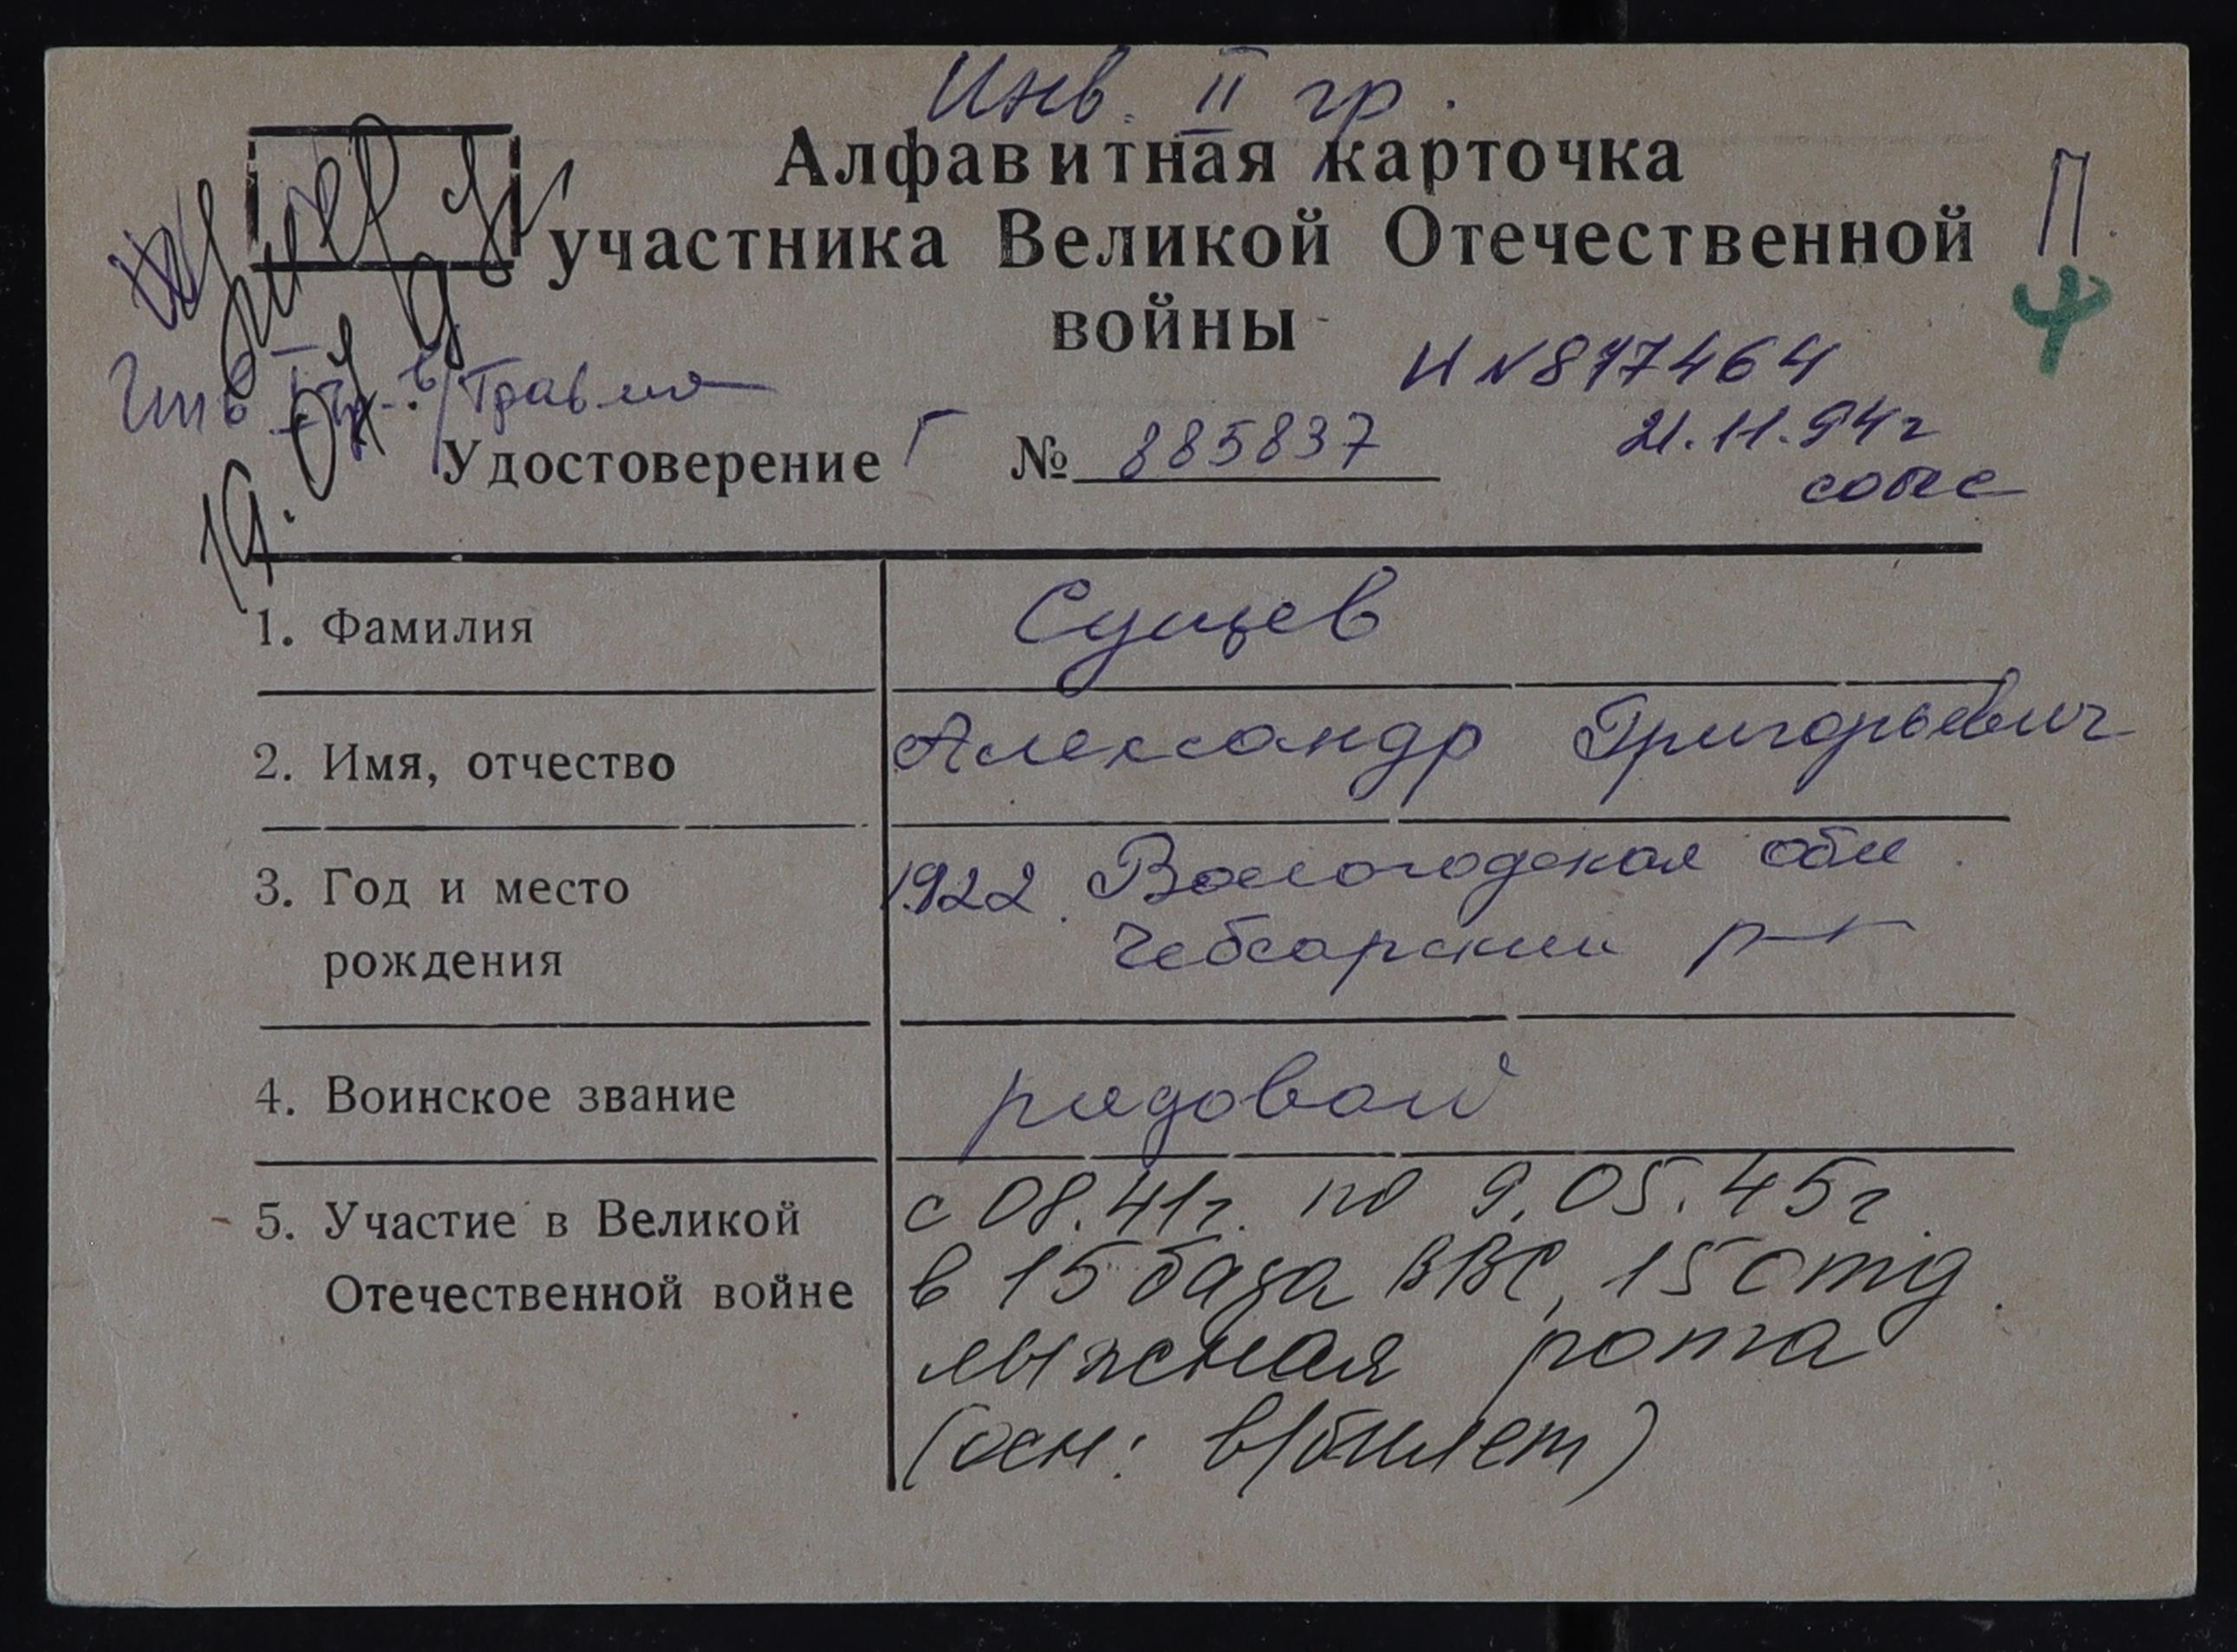 Инв. II гр.
Алфавитная карточка
участника Великой Отечественной
войны
П.
умер
И №847464
Инв I гр. в/травма
21.11.94г
Удостоверение Г № 885837
19.04.
1. Фамилия Сущев
2. Имя, отчество Александр Григорьевич
3. Год и место 1922. Вологодская обл.
рождения Чебсарский р-н
4. Воинское звание рядовой
5. Участие в Великой с 08.41г. по 9.05.45г.
Отечественной войне в 15 база ВВС, 15 отд.
лыжная рота
(осн: в/билет)